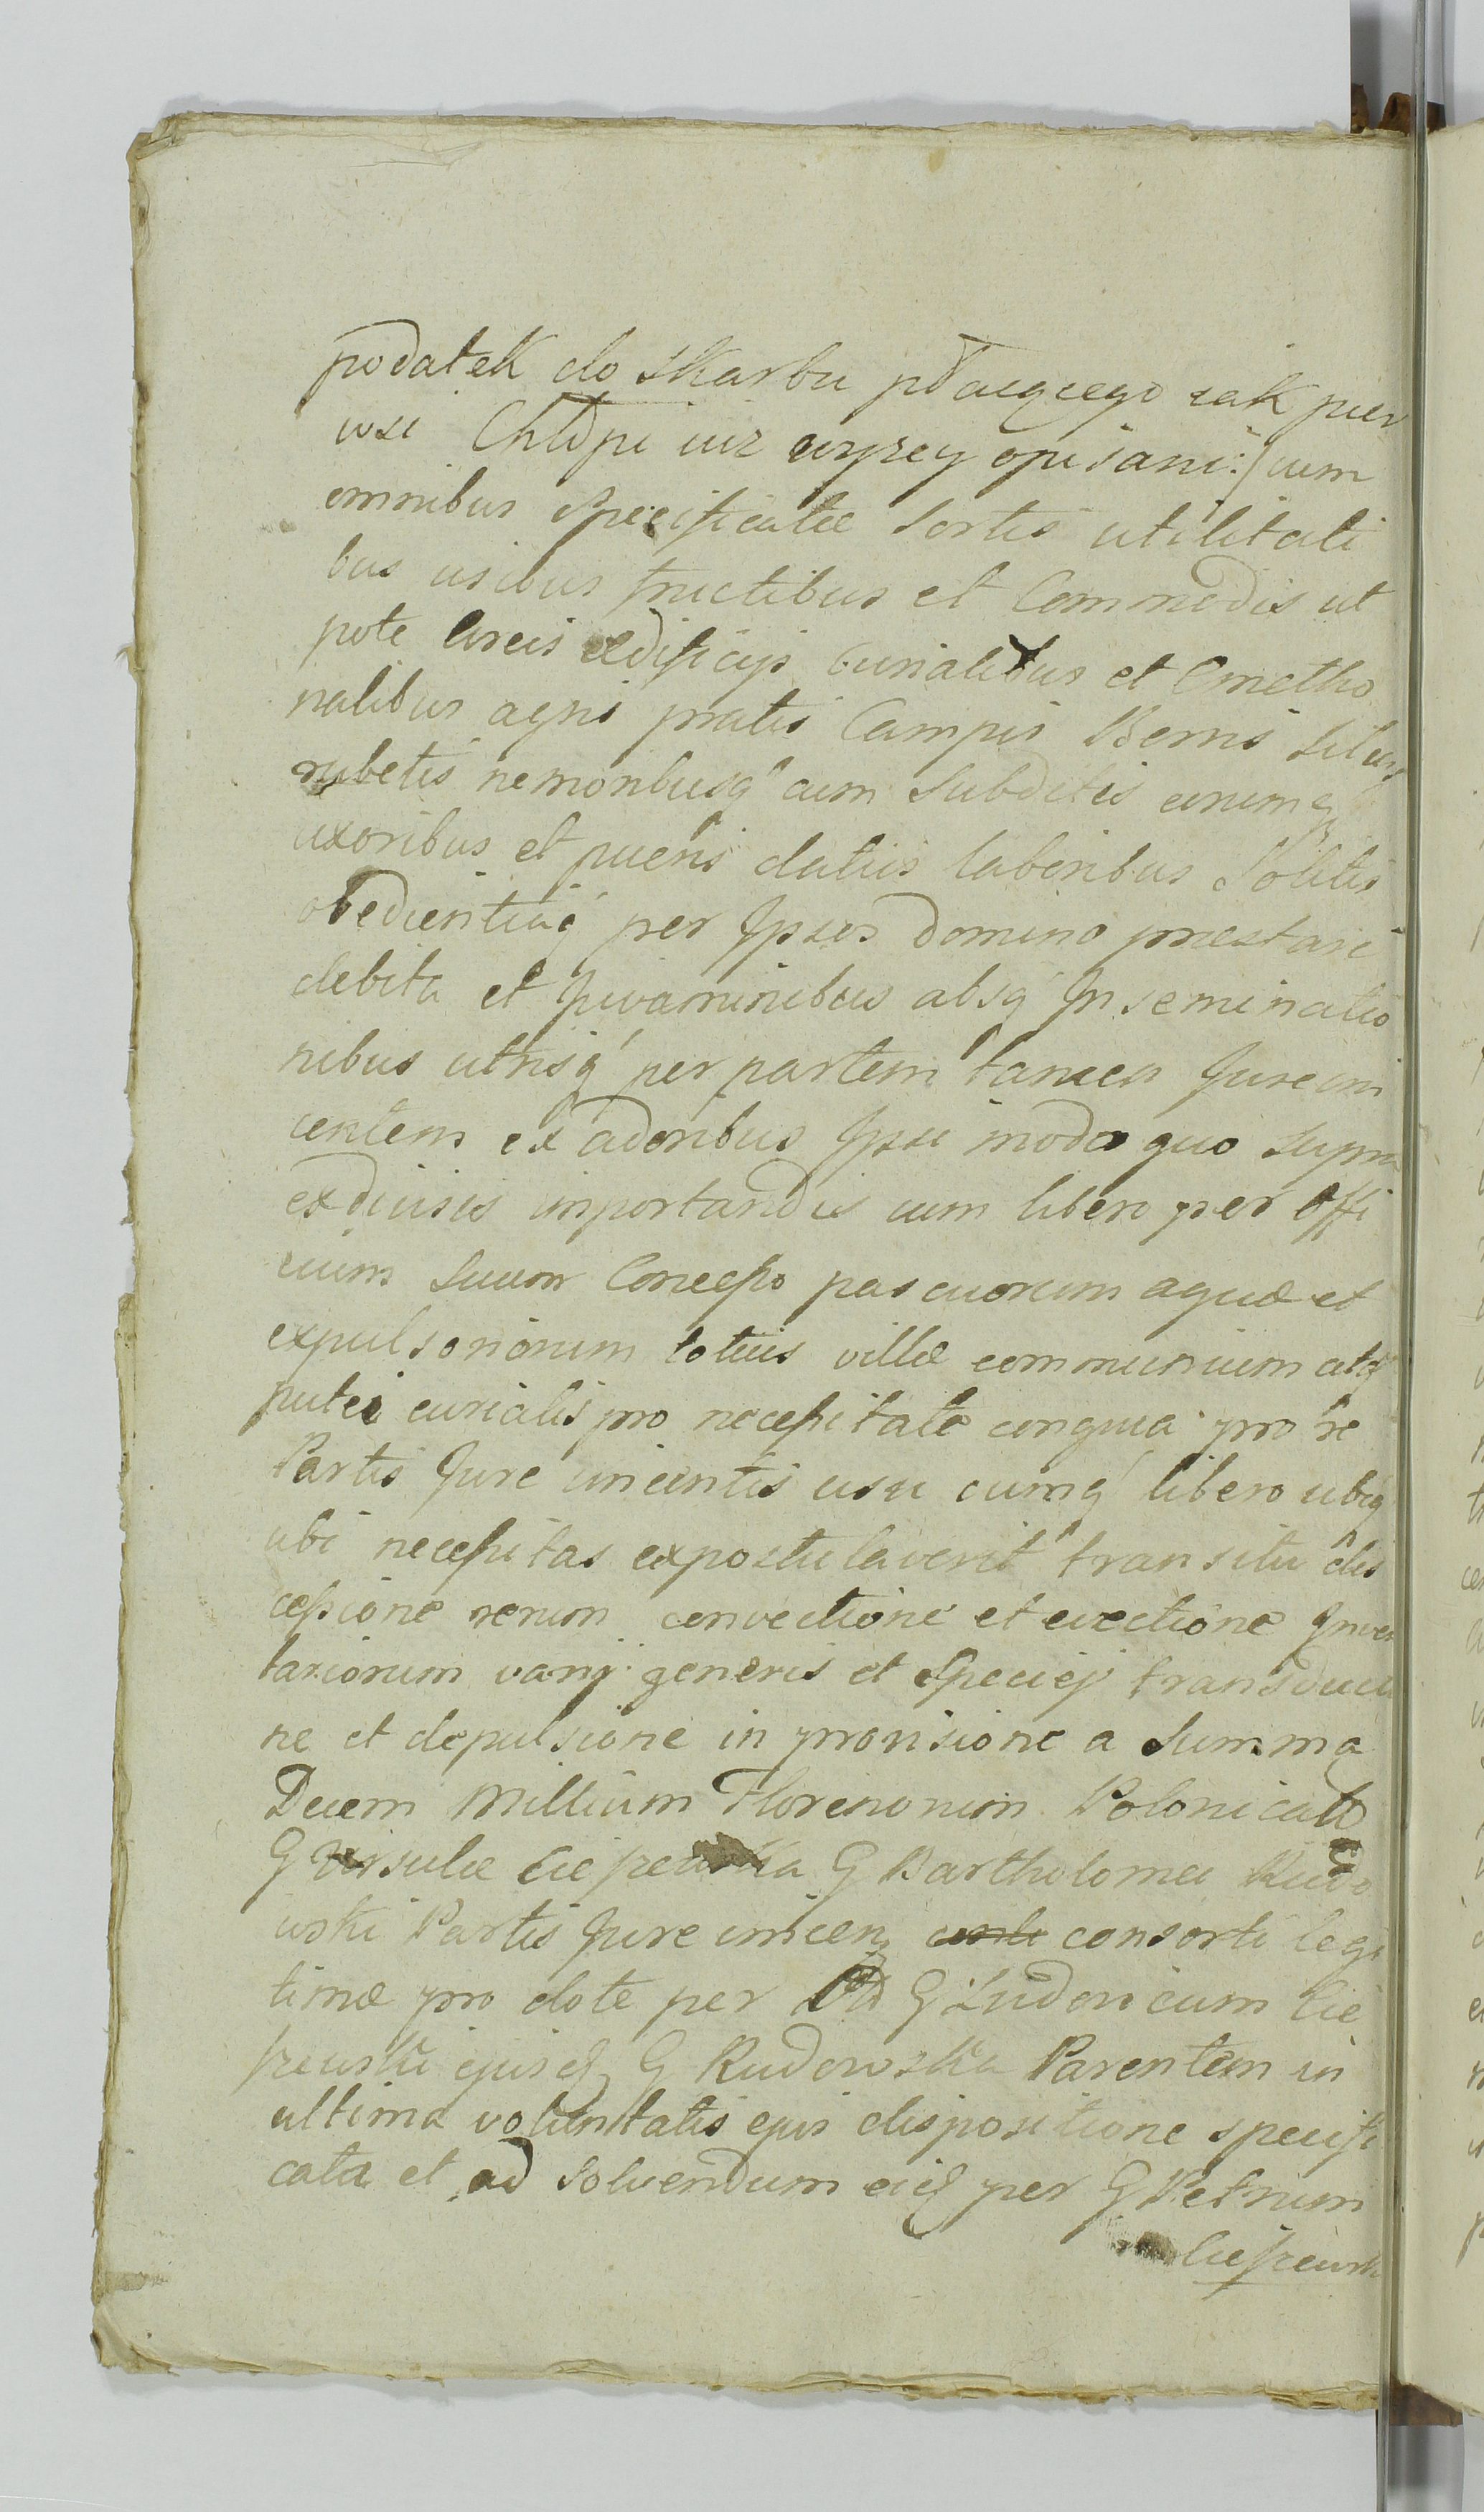 podatek do skarbu płacącego iak pier
wsi Chłopi iuz wyzey opisani:/ cum
omnibus specificatæ Sortis utilitati
bus usibus fructibus et Commodis ut
pote areis ædificijs Curialibus et Cmetho
nalibus agris pratis Campis Borris Siluis
rubetis nemoribusq' cum Subditis eorumq
uxoribus et pueris datiis laboribus Solitis
obedientiaq' per Ipsos domino præstari
debita et Juvaminibus absq' Inseminatio
nibus utrisq' per partem tamen Jure vin
centem ex adoribus Ipsi modo quo supra
exdivisis importandis cum libero per offi
cium Suum Concesso pascuorum aquæ et
expulsoriorum totius villæ communium atq'
putei curialis pro necessitate congrua pro re
Partis Jure vincentis usu cumq' libero ubiq'
ubi necessitas expostulaverit transitu dis
cessione rerum convectione et evectione Inven
tariorum varij generis et Speciej transductio
ne et depulsione in provisione a Summa
Decem Millium Florenorum Polonicall
G Ursulæ Cieszewska G Bartholomei Rudo
wski Partis Jure vincen consorti legi
timæ pro dote per G Ludovicum Cie
szewski ejusd G Rudowska Parentem in
ultima voluntatis ejus dispositione specifi
cata et ad solvendum eid per G Petrum
Cieszewsk